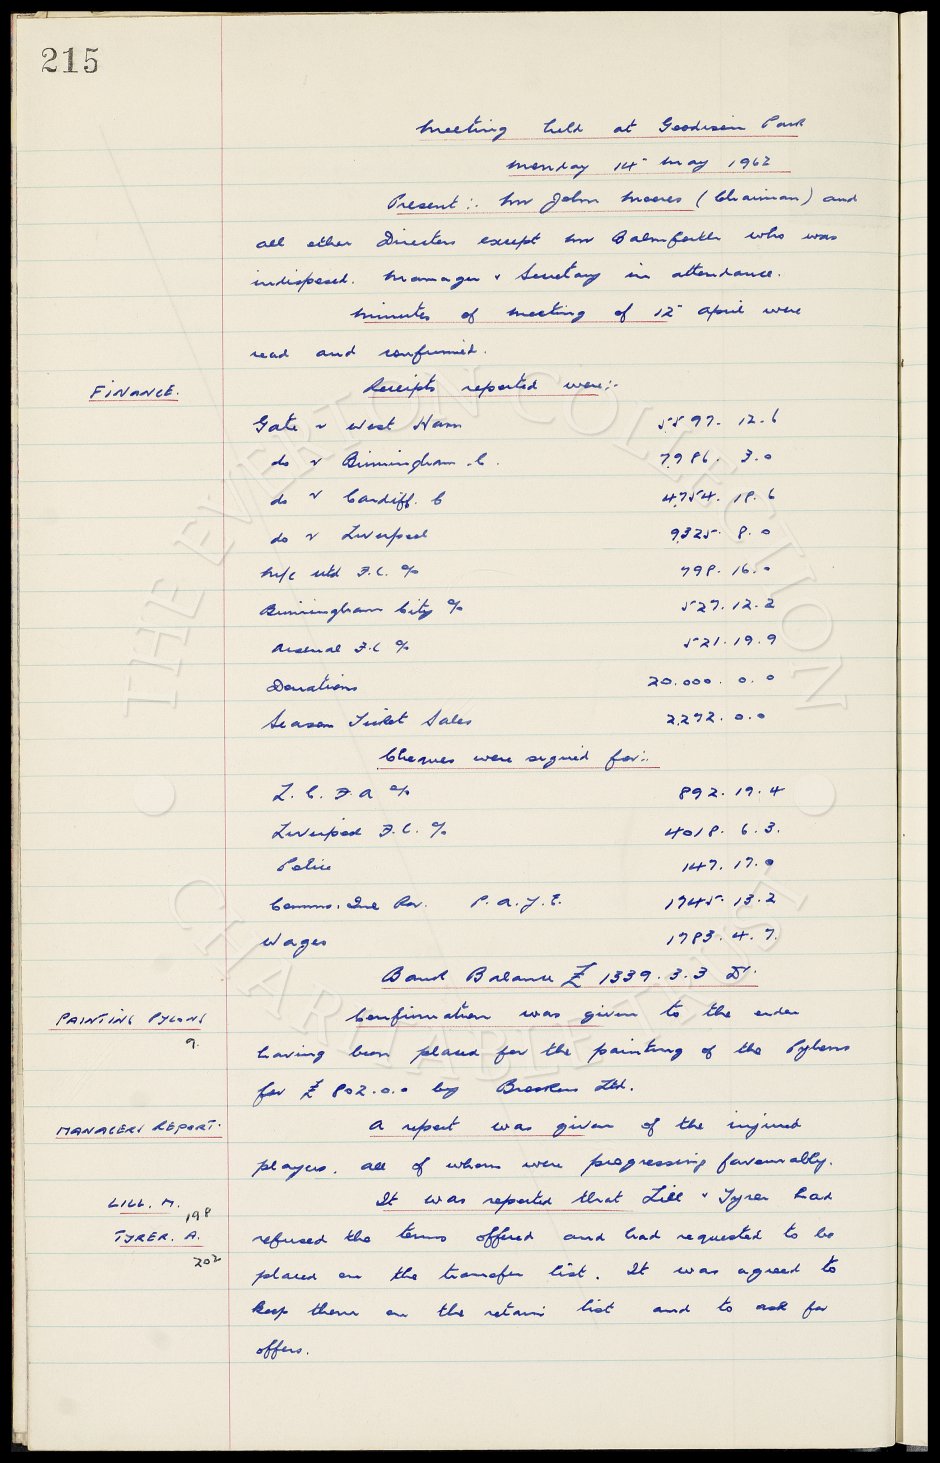 215
Meeting held at Goodison Park
Monday 14th May 1962
Present:- Mr John Moores (Chairman) and
all other Directors except Mr Balmforth who was
indisposed. Manager & Secretary in attendance.
Minutes of meeting of 12th April were
read and confirmed.
FINANCE. Receipts reported were:-
Gate v West Ham 5597. 12. 6
do v Birmingham. C. 7986. 3. 0
do v Cardiff. C 4754. 18. 6
do v Liverpool 9325. 8. 0
M/c Utd F.C. % 798. 16. 0
Birmingham City % 527. 12. 2
Arsenal F.C % 521. 19. 9
Donations 20.000. 0. 0
Season Ticket Sales 2272. 0. 0
Cheques were signed for:-
L. C. F. A % 892. 19. 4
Liverpool F.C. % 4018. 6. 3.
Police 147. 17. 0
Comms. Inl Rev. P.A.Y.E. 1745. 13. 2
Wages 1783. 4. 7.
Bank Balance £ 1339. 3. 3 Dr.
PAINTING PYLONS Confirmation was given to the order
9. having been placed for the painting of the Pylons
for £ 802. 0. 0 by Ltd.
MANAGERS REPORT. A report was given of the injured
players. all of whom were progressing favourably.
LILL. M. 198 It was reported that Lill & Tyrer had
TYRER. A. 202 refused the terms offered and had requested to be
placed on the transfer list. It was agreed to
keep them on the retain list and to ask for
offers.
THE EVERTON COLLECTION
CHARITABLE TRUST